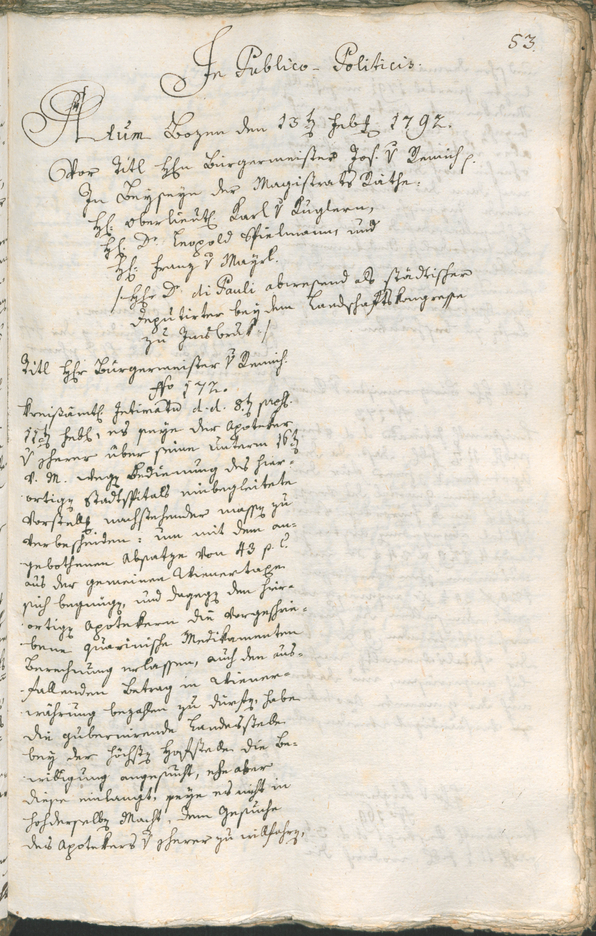 53
In Publico-Politicis.
Actum Bozen den 13t Hebt 1792.
Vor Titl Hn Bürgermeister Jos. v Remich p.
In Beyseyn der Magistrats Räthe:
H: Oberlieut: Karl v Kuglern,
H: Dr Leopold Spielmann, und
H: Franz v Mayrl.
/: Hr Dr di Pauli abwesend als städtischer
Deputirter bey dem Landschaftskongresse
zu Insbruk :/
Titl Hr Bürgermeister v Remich.
No 172.
Kreisamtl Intimatn d.d. 8t
11t Hebt, es seye der Apoteker
v über seine unterm 16t
v. M. wegen Bedienung des hier-
ortigen Stadtspitals einbegleitete
Vorstellg nachstehender massen zu
verbescheiden: um mit dem an-
gebothenen Absatze von 43 p. C.
aus der gemeinen Wienertaxe
sich begnügen, und dagegen den hier-
ortigen Apotekern die vorgeschrie-
bene quarinische Medikamenten
Berechnung erlassen, auch den aus-
fallenden Betrag in Wiener-
währung bezahlen zu dürfen, habe
die gubernirende Landesstelle
bey der höchsten Hofstelle die Be-
willigung angesucht, ehe aber
diese einlangt, seye es nicht in
hochderselben Macht, dem Gesuche
des Apotekers v zu willfahren,